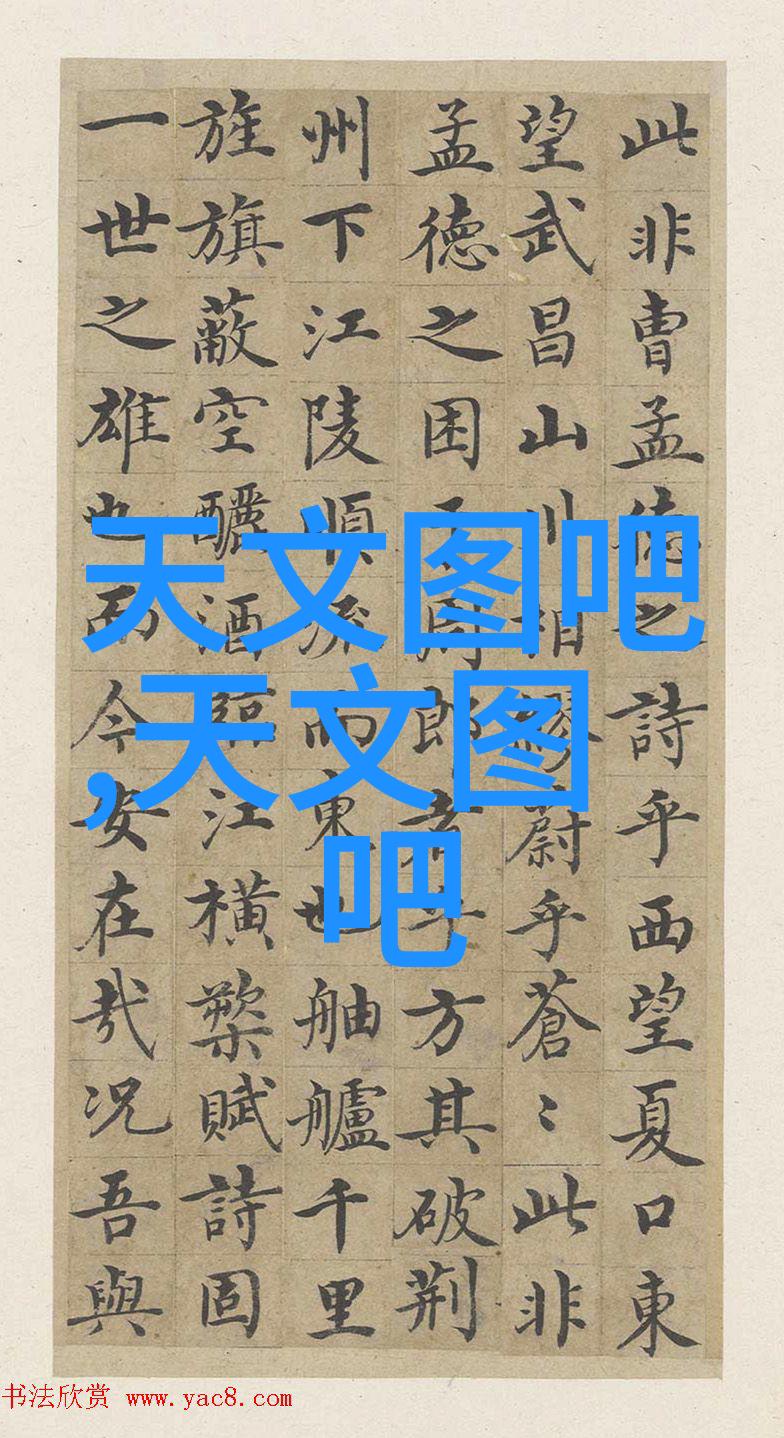 此非曹孟德之詩乎西望夏口東
望武昌山川相繆蔚乎蒼〻此非
孟德之困于周郎者乎方其破荆
州下江陵順流而東也舳艫千里
旌旗蔽空釃酒臨江横槊賦詩固
一世之雄也而今安在哉况吾與
天文图吧
,天文图
吧
书法欣赏 www.yac8.com